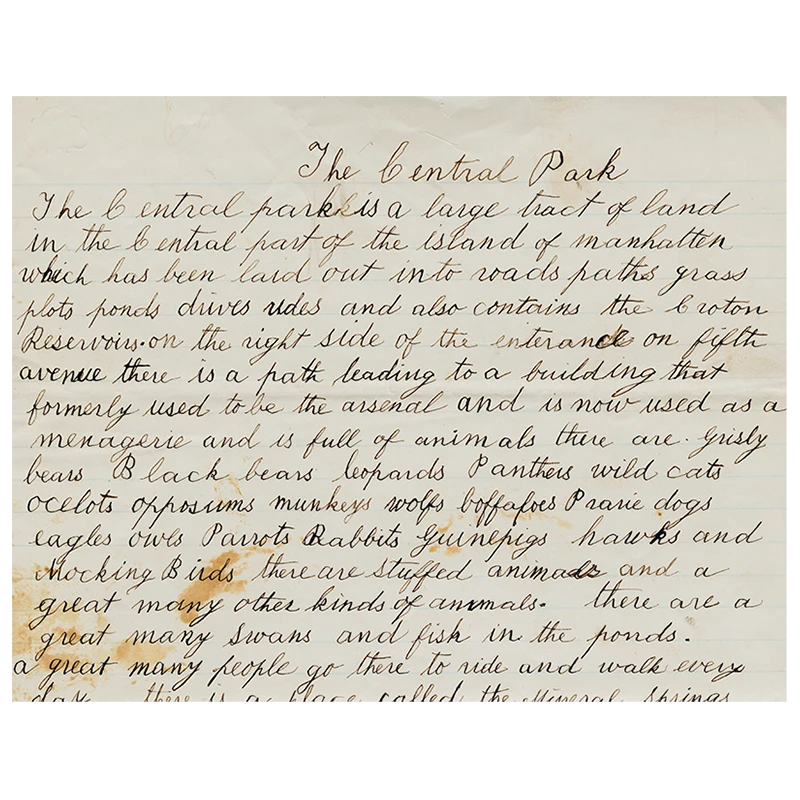 The Central Park
The Central park is a large tract of land
in the Central part of the island of manhatten
which has been laid out into roads paths grass
plots ponds drives rides and also contains the Croton
Reservoirs. on the right side of the enterance on fifth
avenue there is a path leading to a building that
formerly used to be the arsenal and is now used as a
menagerie and is full of animals there are. Grisly
bears Black bears leopards Panthers wild cats
ocelots opposums munkeys wolfs boffafoes Prarie dogs
eagles owls Parrots Rabbits Guinepigs hawks and
Mocking Birds there are stuffed animals and a
great many other kinds of animals. there are a
great many swans and fish in the ponds.
a great many people go there to ride and walk every
day there is a place called the Mineral springs